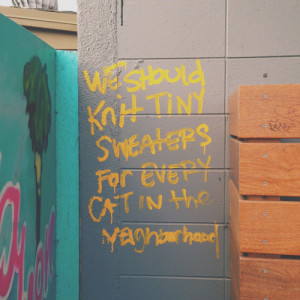 WE SHOULD
KNIT TINY
SWEATERS
FOR EVERY
CAT IN the
neighborhood